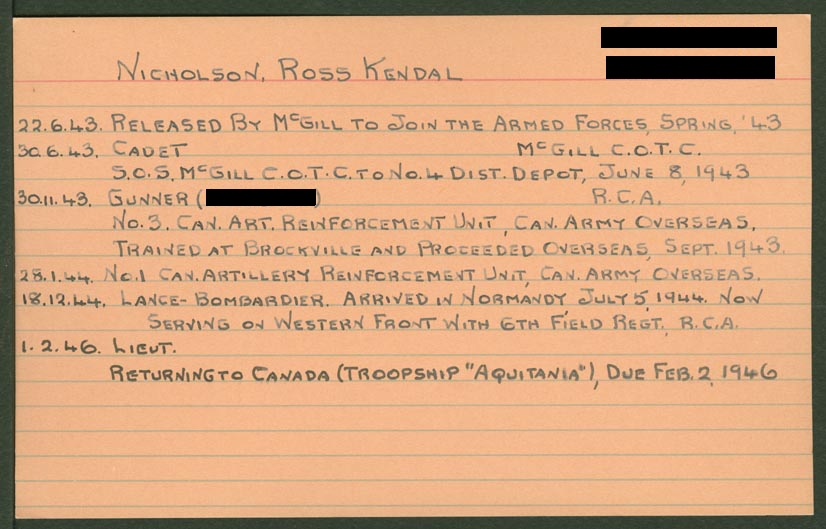 NICHOLSON, ROSS KENDAL
22.6.43. RELEASED BY McGILL TO JOIN THE ARMED FORCES, SPRING, '43
30.6.43. CADET McGILL C.O.T.C.
S.O.S. McGILL C.O.T.C. TO No.4 DIST. DEPOT, JUNE 8, 1943
30.11.43. GUNNER ( ) R.C.A.
No.3. CAN. ART. REINFORCEMENT UNIT, CAN. ARMY OVERSEAS,
TRAINED AT BROCKVILLE AND PROCEEDED OVERSEAS, SEPT. 1943.
28.1.44. No.1 CAN. ARTILLERY REINFORCEMENT UNIT, CAN. ARMY OVERSEAS.
18.12.44. LANCE-BOMBARDIER. ARRIVED IN NORMANDY JULY 5, 1944. NOW
SERVING ON WESTERN FRONT WITH 6TH FIELD REGT. R.C.A.
1.2.46. LIEUT.
RETURNING TO CANADA (TROOPSHIP "AQUITANIA"), DUE FEB. 2, 1946